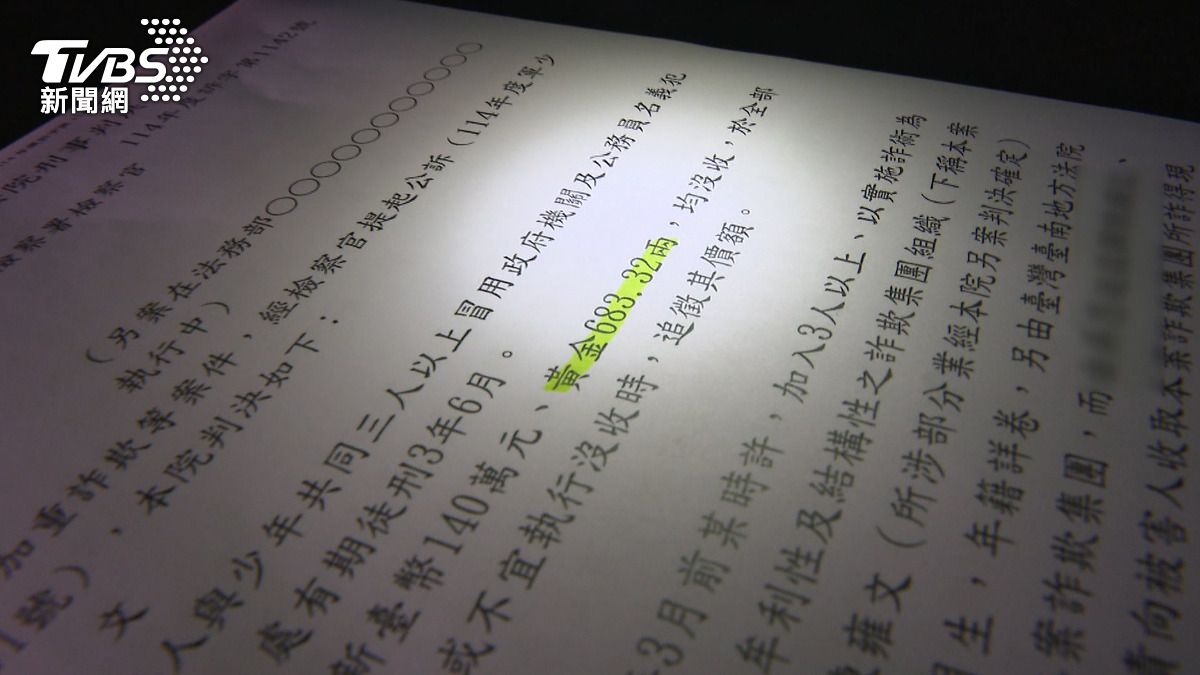 TVBS
新聞網
院刑事判
114年度訴字第1142號
檢察署檢察官
(另案在法務部○○○○○○○○○○○○○
執行中)
加重詐欺等案件,經檢察官提起公訴(114年度軍少
1號),本院判決如下:
文
人與少年共同三人以上冒用政府機關及公務員名義犯
處有期徒刑3年6月。
新臺幣140萬元、黃金683.32兩,均沒收,於全部
或不宜執行沒收時,追徵其價額。
3月前某時許,加入3人以上、以實施詐術為
牟利性及結構性之詐欺集團組織(下稱本案
雍文(所涉部分業經本院另案判決確定)
月生,年籍詳卷,另由臺灣臺南地方法院
案詐欺集團,而
責向被害人收取本案詐欺集團所詐得現